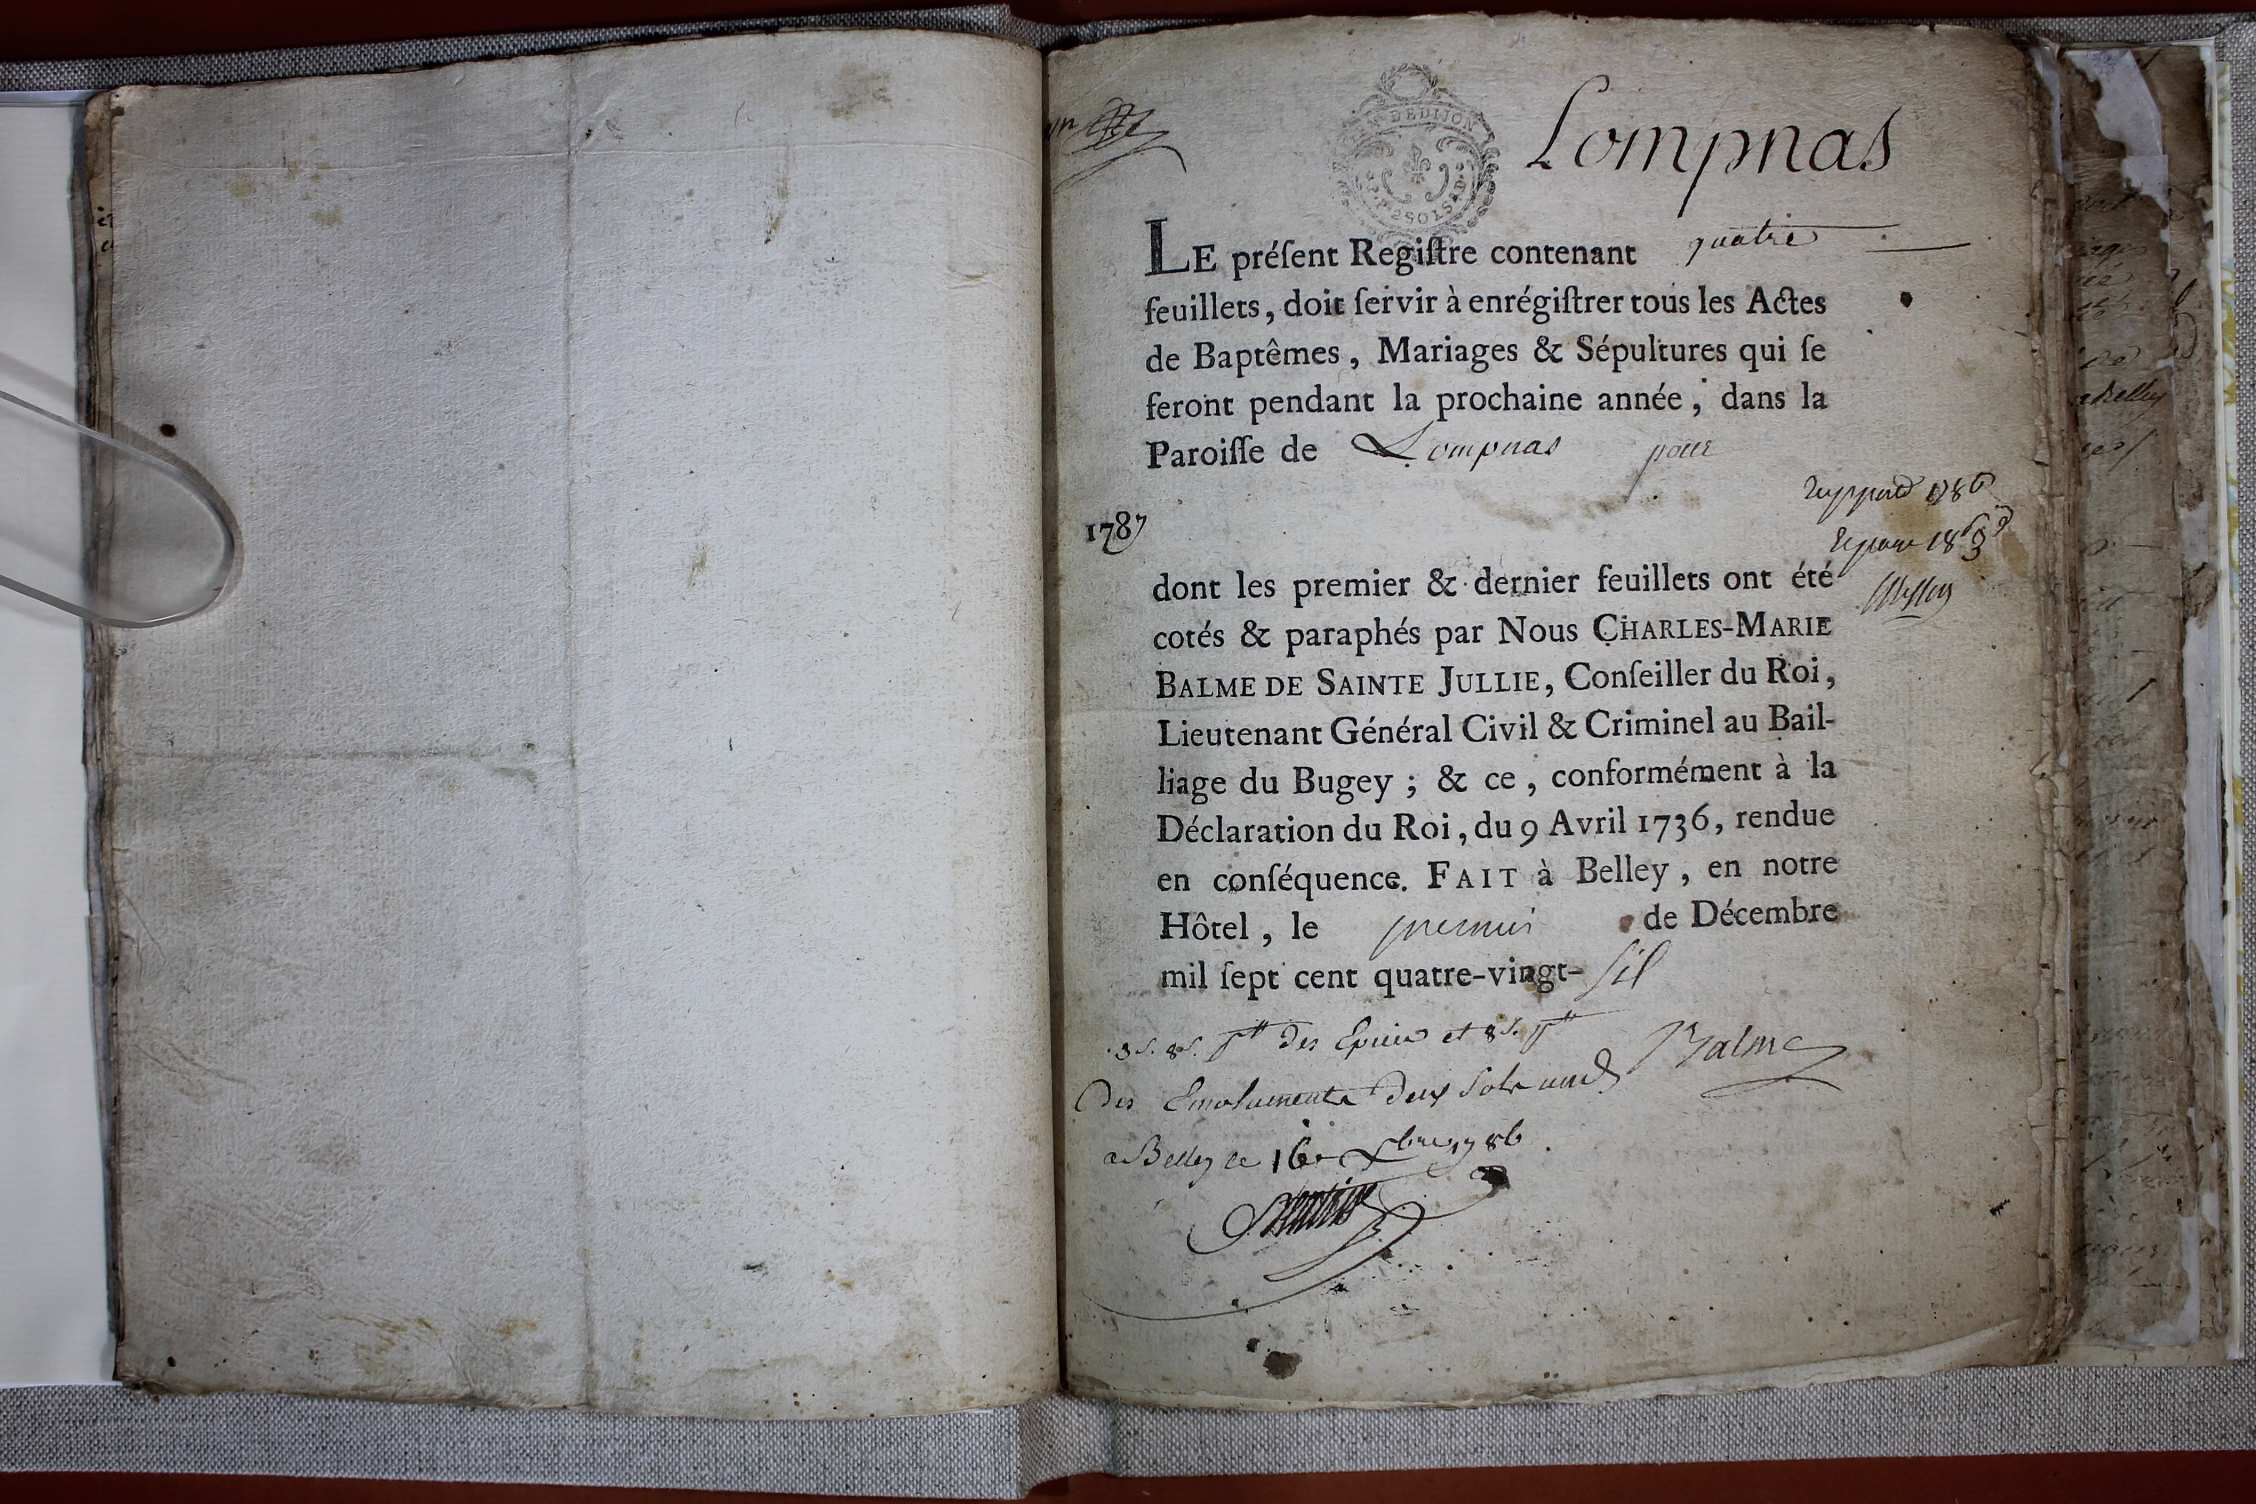 Lompnas
DEDIJON
2 SOLS
LE préſent Regiſtre contenant quatre
feuillets, doit ſervir à enrégiſtrer tous les Actes
de Baptêmes, Mariages & Sépultures qui ſe
feront pendant la prochaine année, dans la
Paroiſſe de Lompnas pour
1787
dont les premier & dernier feuillets ont été
cotés & paraphés par Nous CHARLES-MARIE
BALME DE SAINTE JULLIE, Conſeiller du Roi,
Lieutenant Général Civil & Criminel au Bail-
liage du Bugey ; & ce, conformément à la
Déclaration du Roi, du 9 Avril 1736, rendue
en conſéquence. FAIT à Belley, en notre
Hôtel, le premier de Décembre
mil ſept cent quatre-vingt-
des Epices et
Balme
Des Emoluments deux sols
a Belley ce 16e Xbre 1786